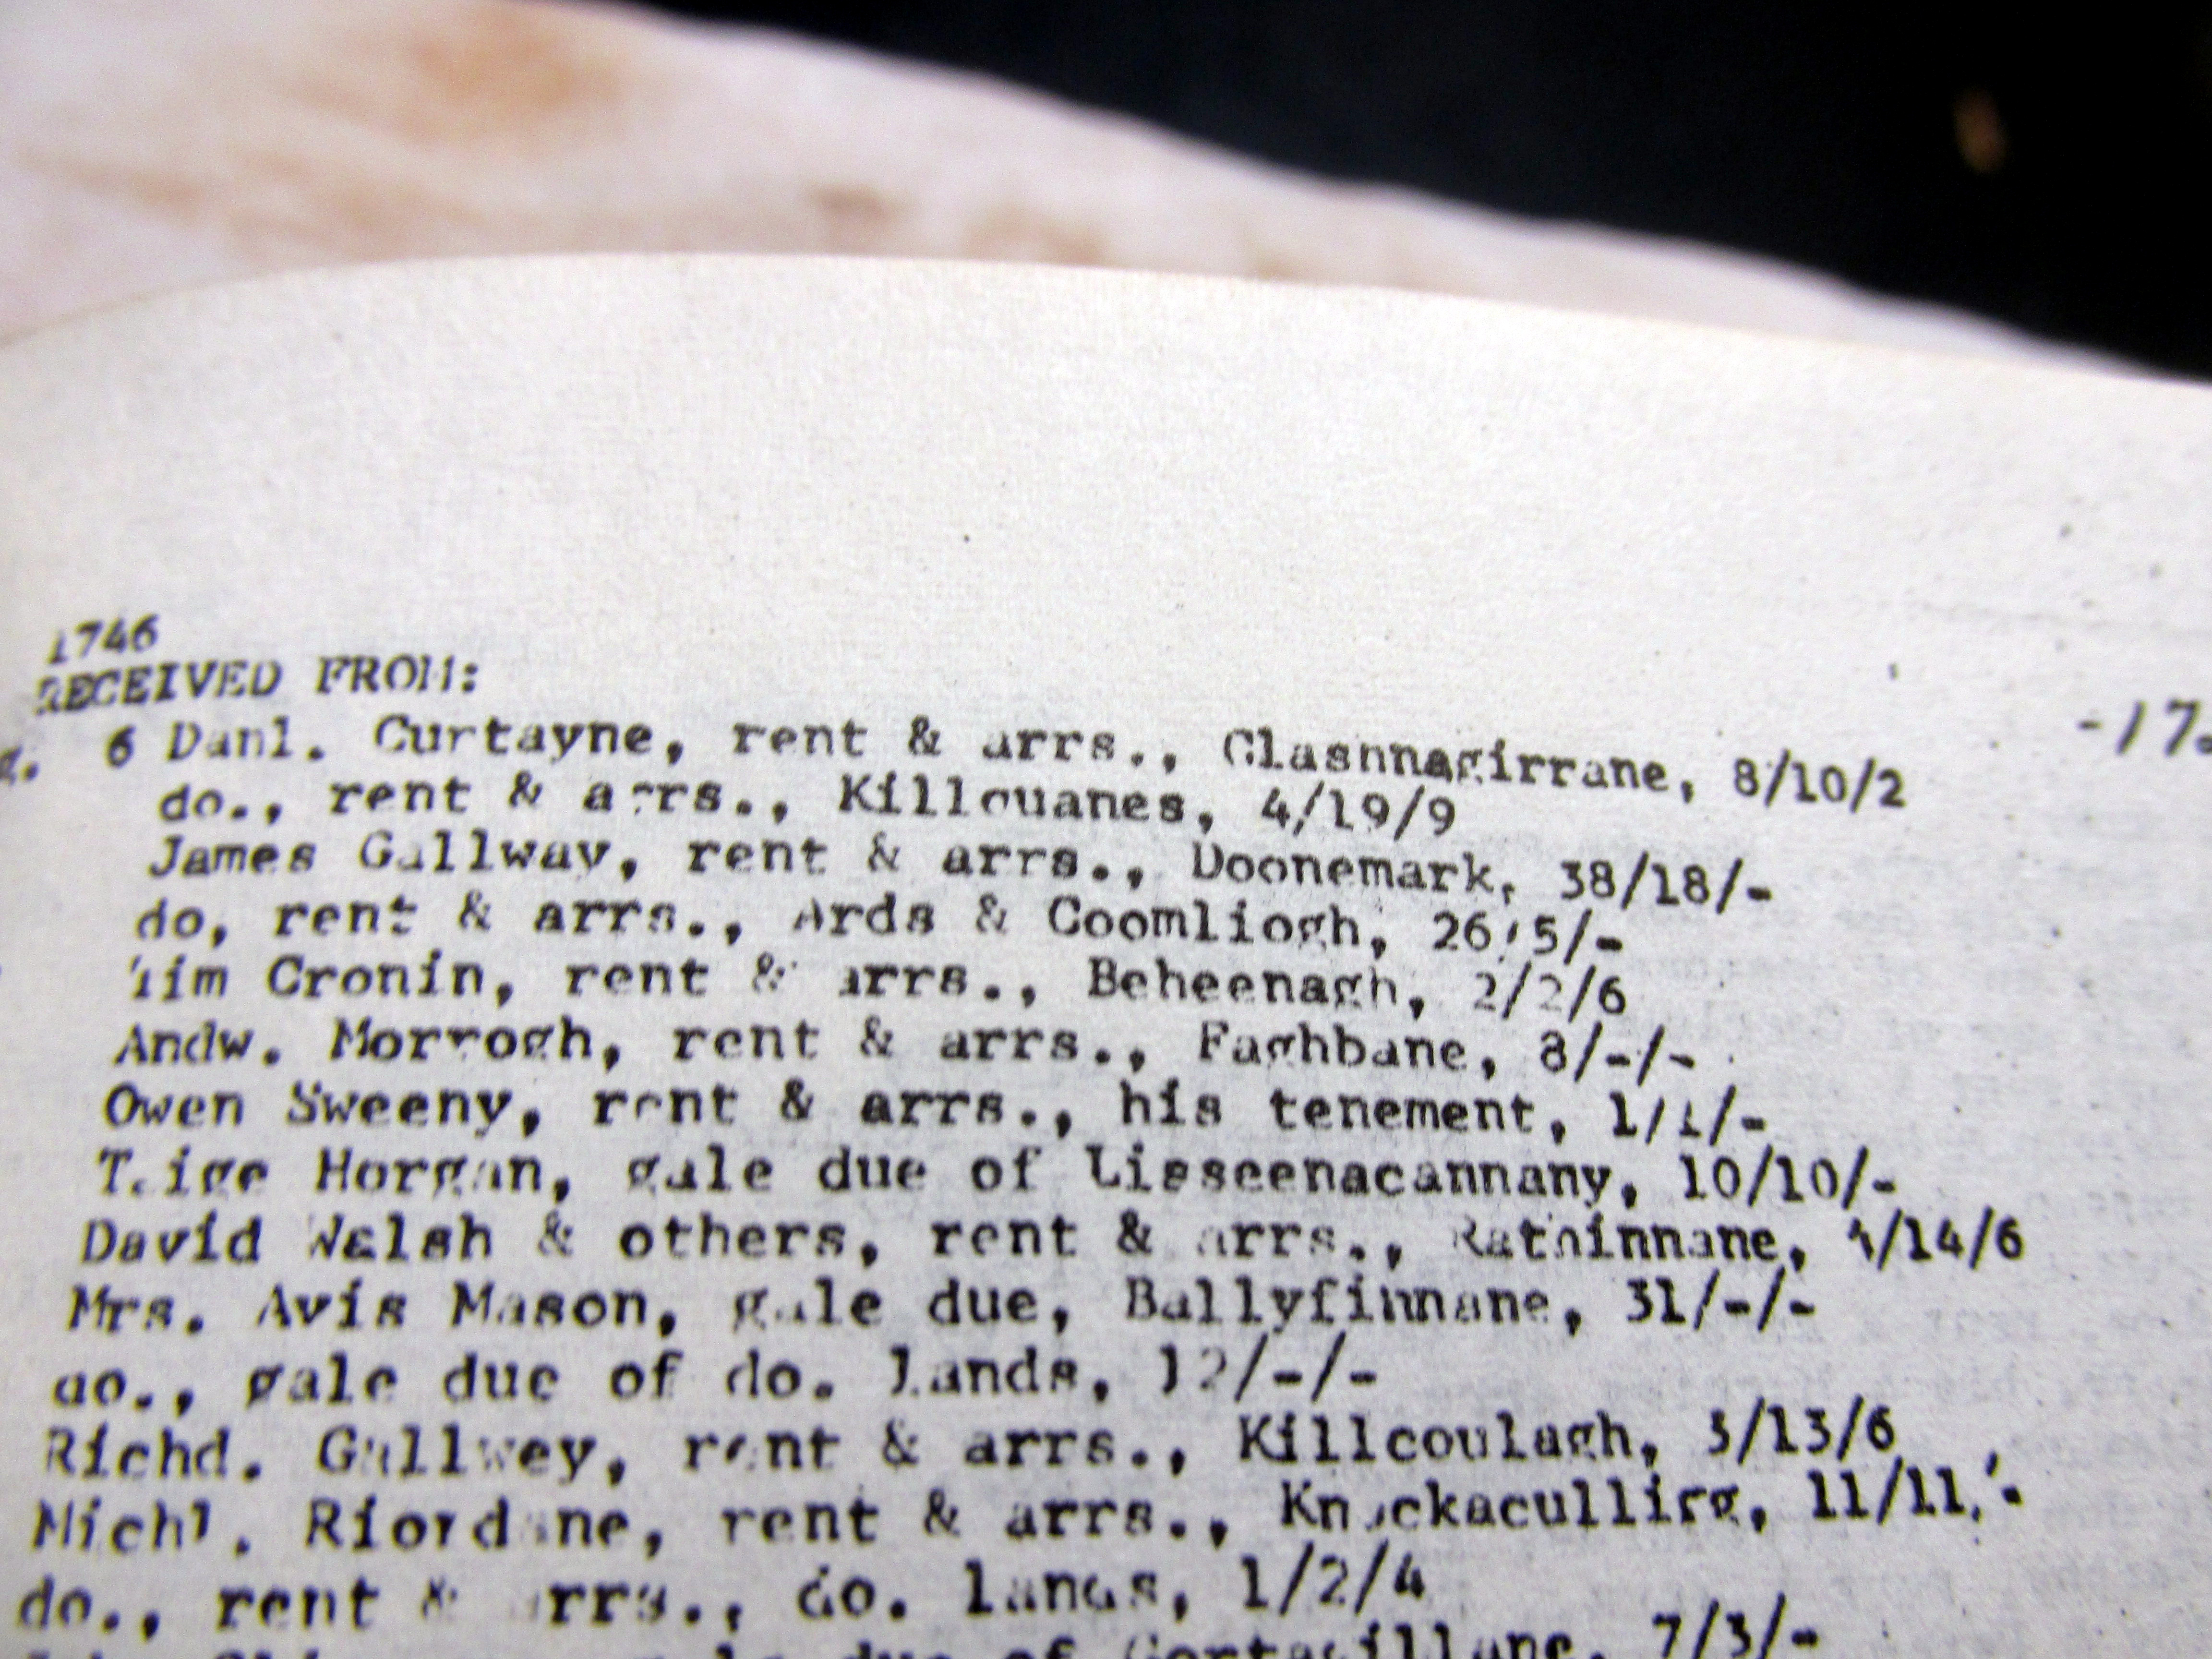 1746
RECEIVED FROM:
-17.
6 Danl. Curtayne, rent & arrs., Glashnnagirrane, 8/10/2
do., rent & arrs., Killouanes, 4/19/9
James Gallway, rent & arrs., Doonemark, 38/18/-
do, rent & arrs., Ards & Coomliogh, 26/5/-
Tim Cronin, rent & arrs., Beheenagh, 2/2/6
Andw. Morrogh, rent & arrs., Faghbane, 8/-/-
Owen Sweeny, rent & arrs., his tenement, 1/1/-
Teige Horgan, gale due of Lisseenacannany, 10/10/-
David Walsh & others, rent & arrs., Rathinnane, 4/14/6
Mrs. Avis Mason, gale due, Ballyfinnane, 31/-/-
do., gale due of do. lands, 12/-/-
Richd. Gallwey, rent & arrs., Killcoulagh, 3/13/6
Michl. Riordane, rent & arrs., Knockacullirg, 11/11/-
do., rent & arrs., do. lands, 1/2/4
due of 7/3/-